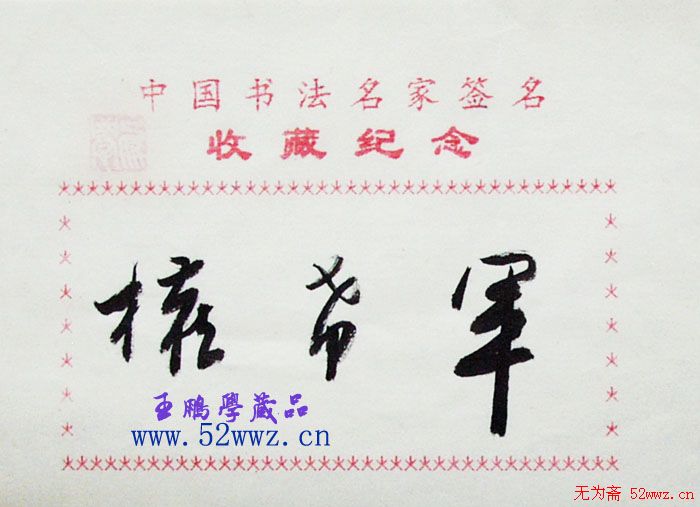 中国书法名家签名
收藏纪念
希军
王鹏學藏品
www.52wwz.cn
无为斋 52wwz.cn